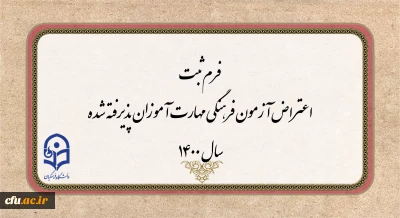 فرم ثبت
اعتراض آزمون فرهنگی مهارت آموزان پذیرفته شده
سال ۱۴۰۰
دانشگاه فرهنگیان
cfu.ac.ir